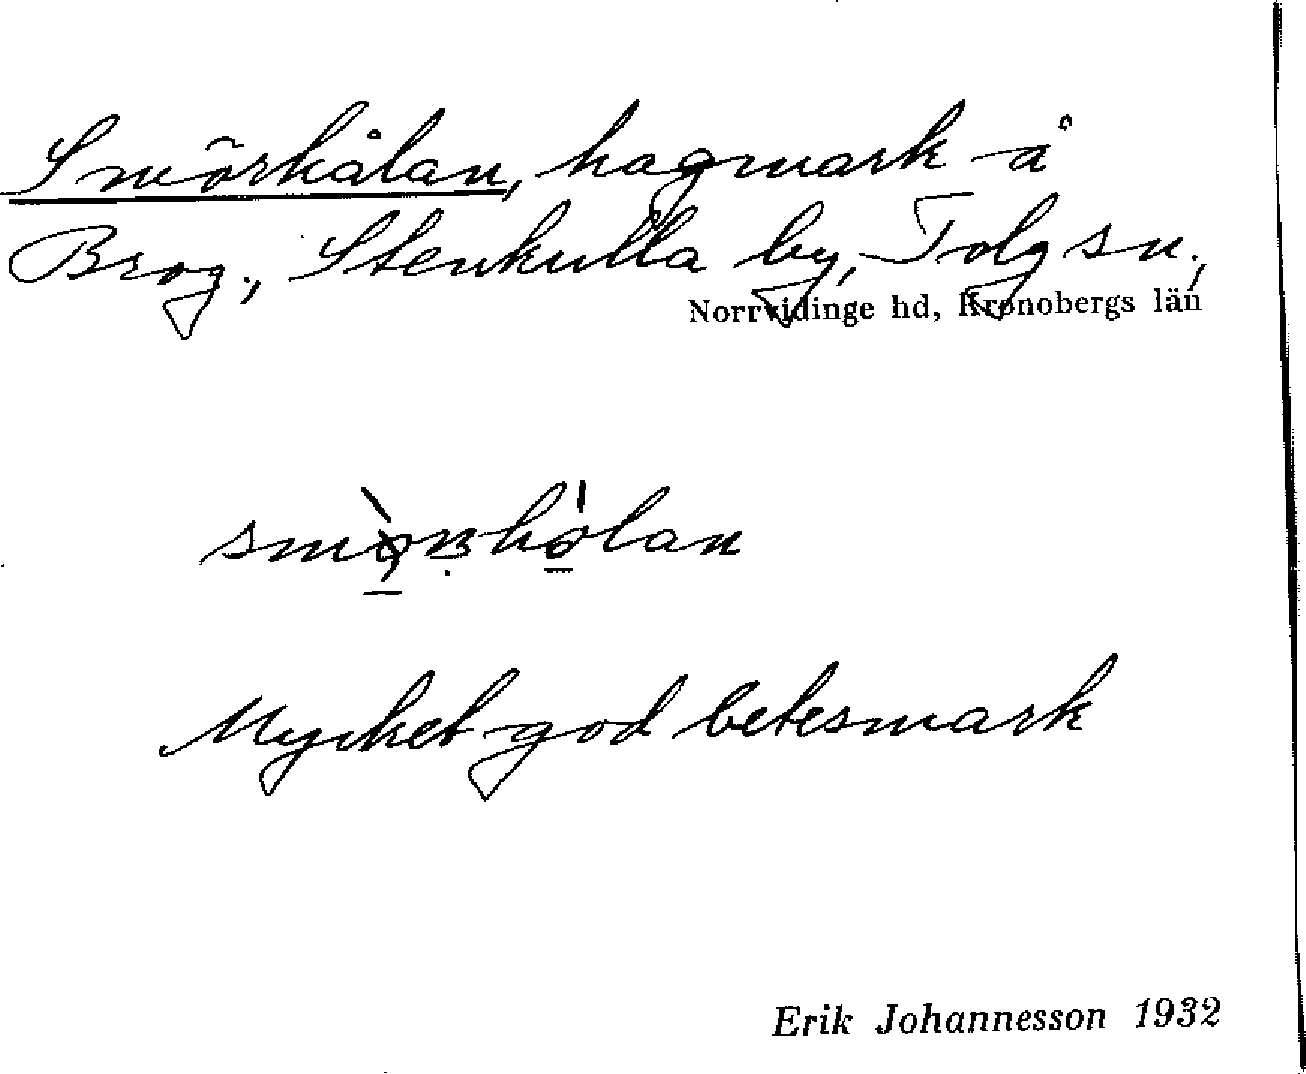 Smörhålan, hagmark å
Brog., Stenkulla by, Tolg sn.,
Norrvidinge hd, Kronobergs län
Mycket god betesmark
Erik Johannesson 1932